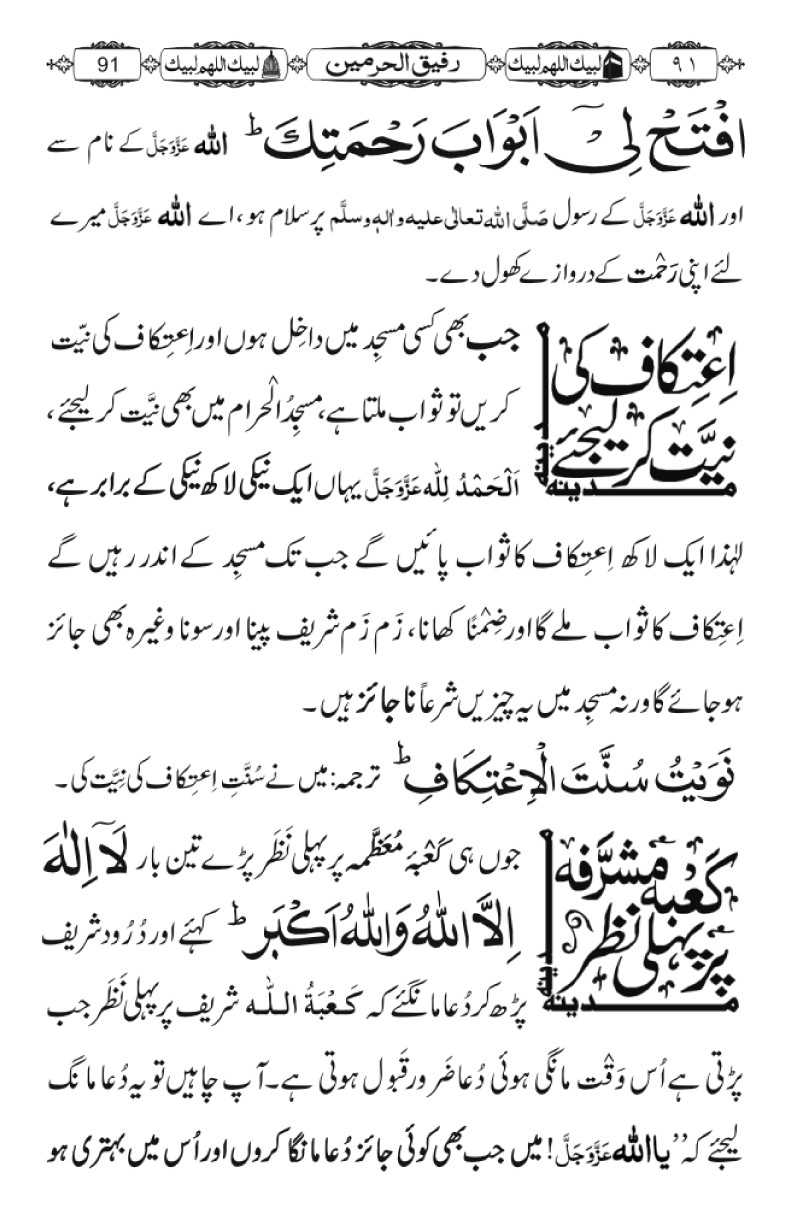 ۹۱ لبیك اللھم لبیك رفیق الحرمین لبیك اللھم لبیك 91
افْتَحْ لِیْۤ اَبْوَابَ رَحْمَتِكَ ؕ اللہ عَزَّوَجَلَّ کے نام سے
اور اللہ عَزَّوَجَلَّ کے رسول صَلَّی اللہ تعالٰی علیہ واٰلہٖ وسلَّم پر سلام ہو، اے اللہ عَزَّوَجَلَّ میرے
لئے اپنی رَحْمت کے دروازے کھول دے۔
اِعتِکاف کی
نیَّت کر لیجئے
مدینہ
مدینہ
جب بھی کسی مسجِد میں داخِل ہوں اور اِعتِکاف کی نیّت
کریں تو ثواب ملتا ہے، مسجِدُ الْحرام میں بھی نیَّت کر لیجئے،
اَلْحَمْدُ لِلّٰہ عَزَّوَجَلَّ یہاں ایک نیکی لاکھ نیکی کے برابر ہے،
لہٰذا ایک لاکھ اِعتِکاف کا ثواب پائیں گے جب تک مسجِد کے اندر رہیں گے
اِعتِکاف کا ثواب ملے گا اور ضِمْنًا کھانا، زَم زَم شریف پینا اور سونا وغیرہ بھی جائز
ہو جائے گا ورنہ مسجِد میں یہ چیزیں شرعاً ناجائز ہیں۔
نَوَیْتُ سُنَّتَ الْاِعْتِکَافِ ؕ ترجمہ: میں نے سُنَّتِ اِعتِکاف کی نِیَّت کی۔
کَعْبہ مشرَّفہ
پر پہلی نظر
مدینہ
مدینہ
جوں ہی کَعْبۂ مُعَظَّمہ پر پہلی نَظَر پڑے تین بار لَاۤ اِلٰہَ
اِلَّا اللہُ وَاللہُ اَکْبَر ؕ کہئے اور دُرُود شریف
پڑھ کر دُعا مانگئے کہ کَعْبَۃُ اللّٰہ شریف پر پہلی نَظَر جب
پڑتی ہے اُس وَقْت مانگی ہوئی دُعا ضَرور قَبول ہوتی ہے۔ آپ چاہیں تو یہ دُعا مانگ
لیجئے کہ ’’یااللہ عَزَّوَجَلَّ! میں جب بھی کوئی جائز دُعا مانگا کروں اور اُس میں بہتری ہو